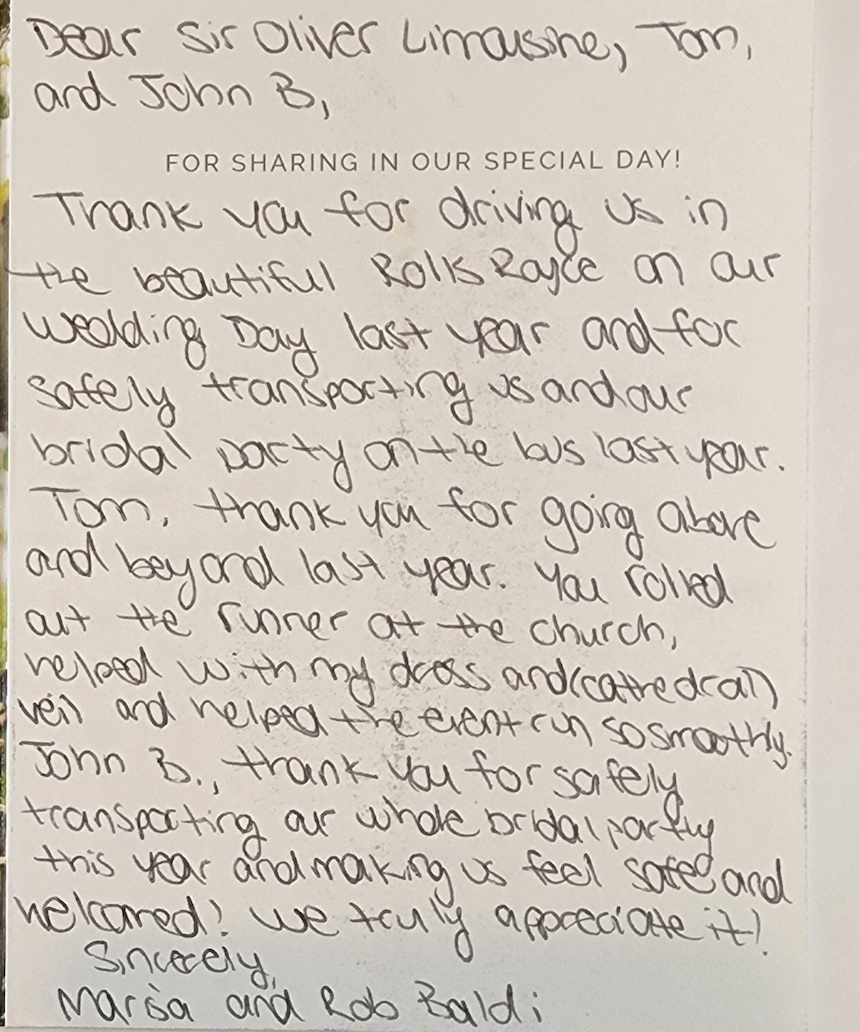 Dear Sir Oliver Limousine, Tom,
and John B,
FOR SHARING IN OUR SPECIAL DAY!
Thank you for driving us in
the beautiful Rolls Royce on our
Wedding Day last year and for
safely transporting us and our
bridal party on the bus last year.
Tom, thank you for going above
and beyond last year. You rolled
out the runner at the church,
helped with my dress and (cathedral)
veil and helped the event run so smoothly.
John B., thank you for safely
transporting our whole bridal party
this year and making us feel safe and
welcomed! We truly appreciate it!
Sincerely,
Marisa and Rob Baldi